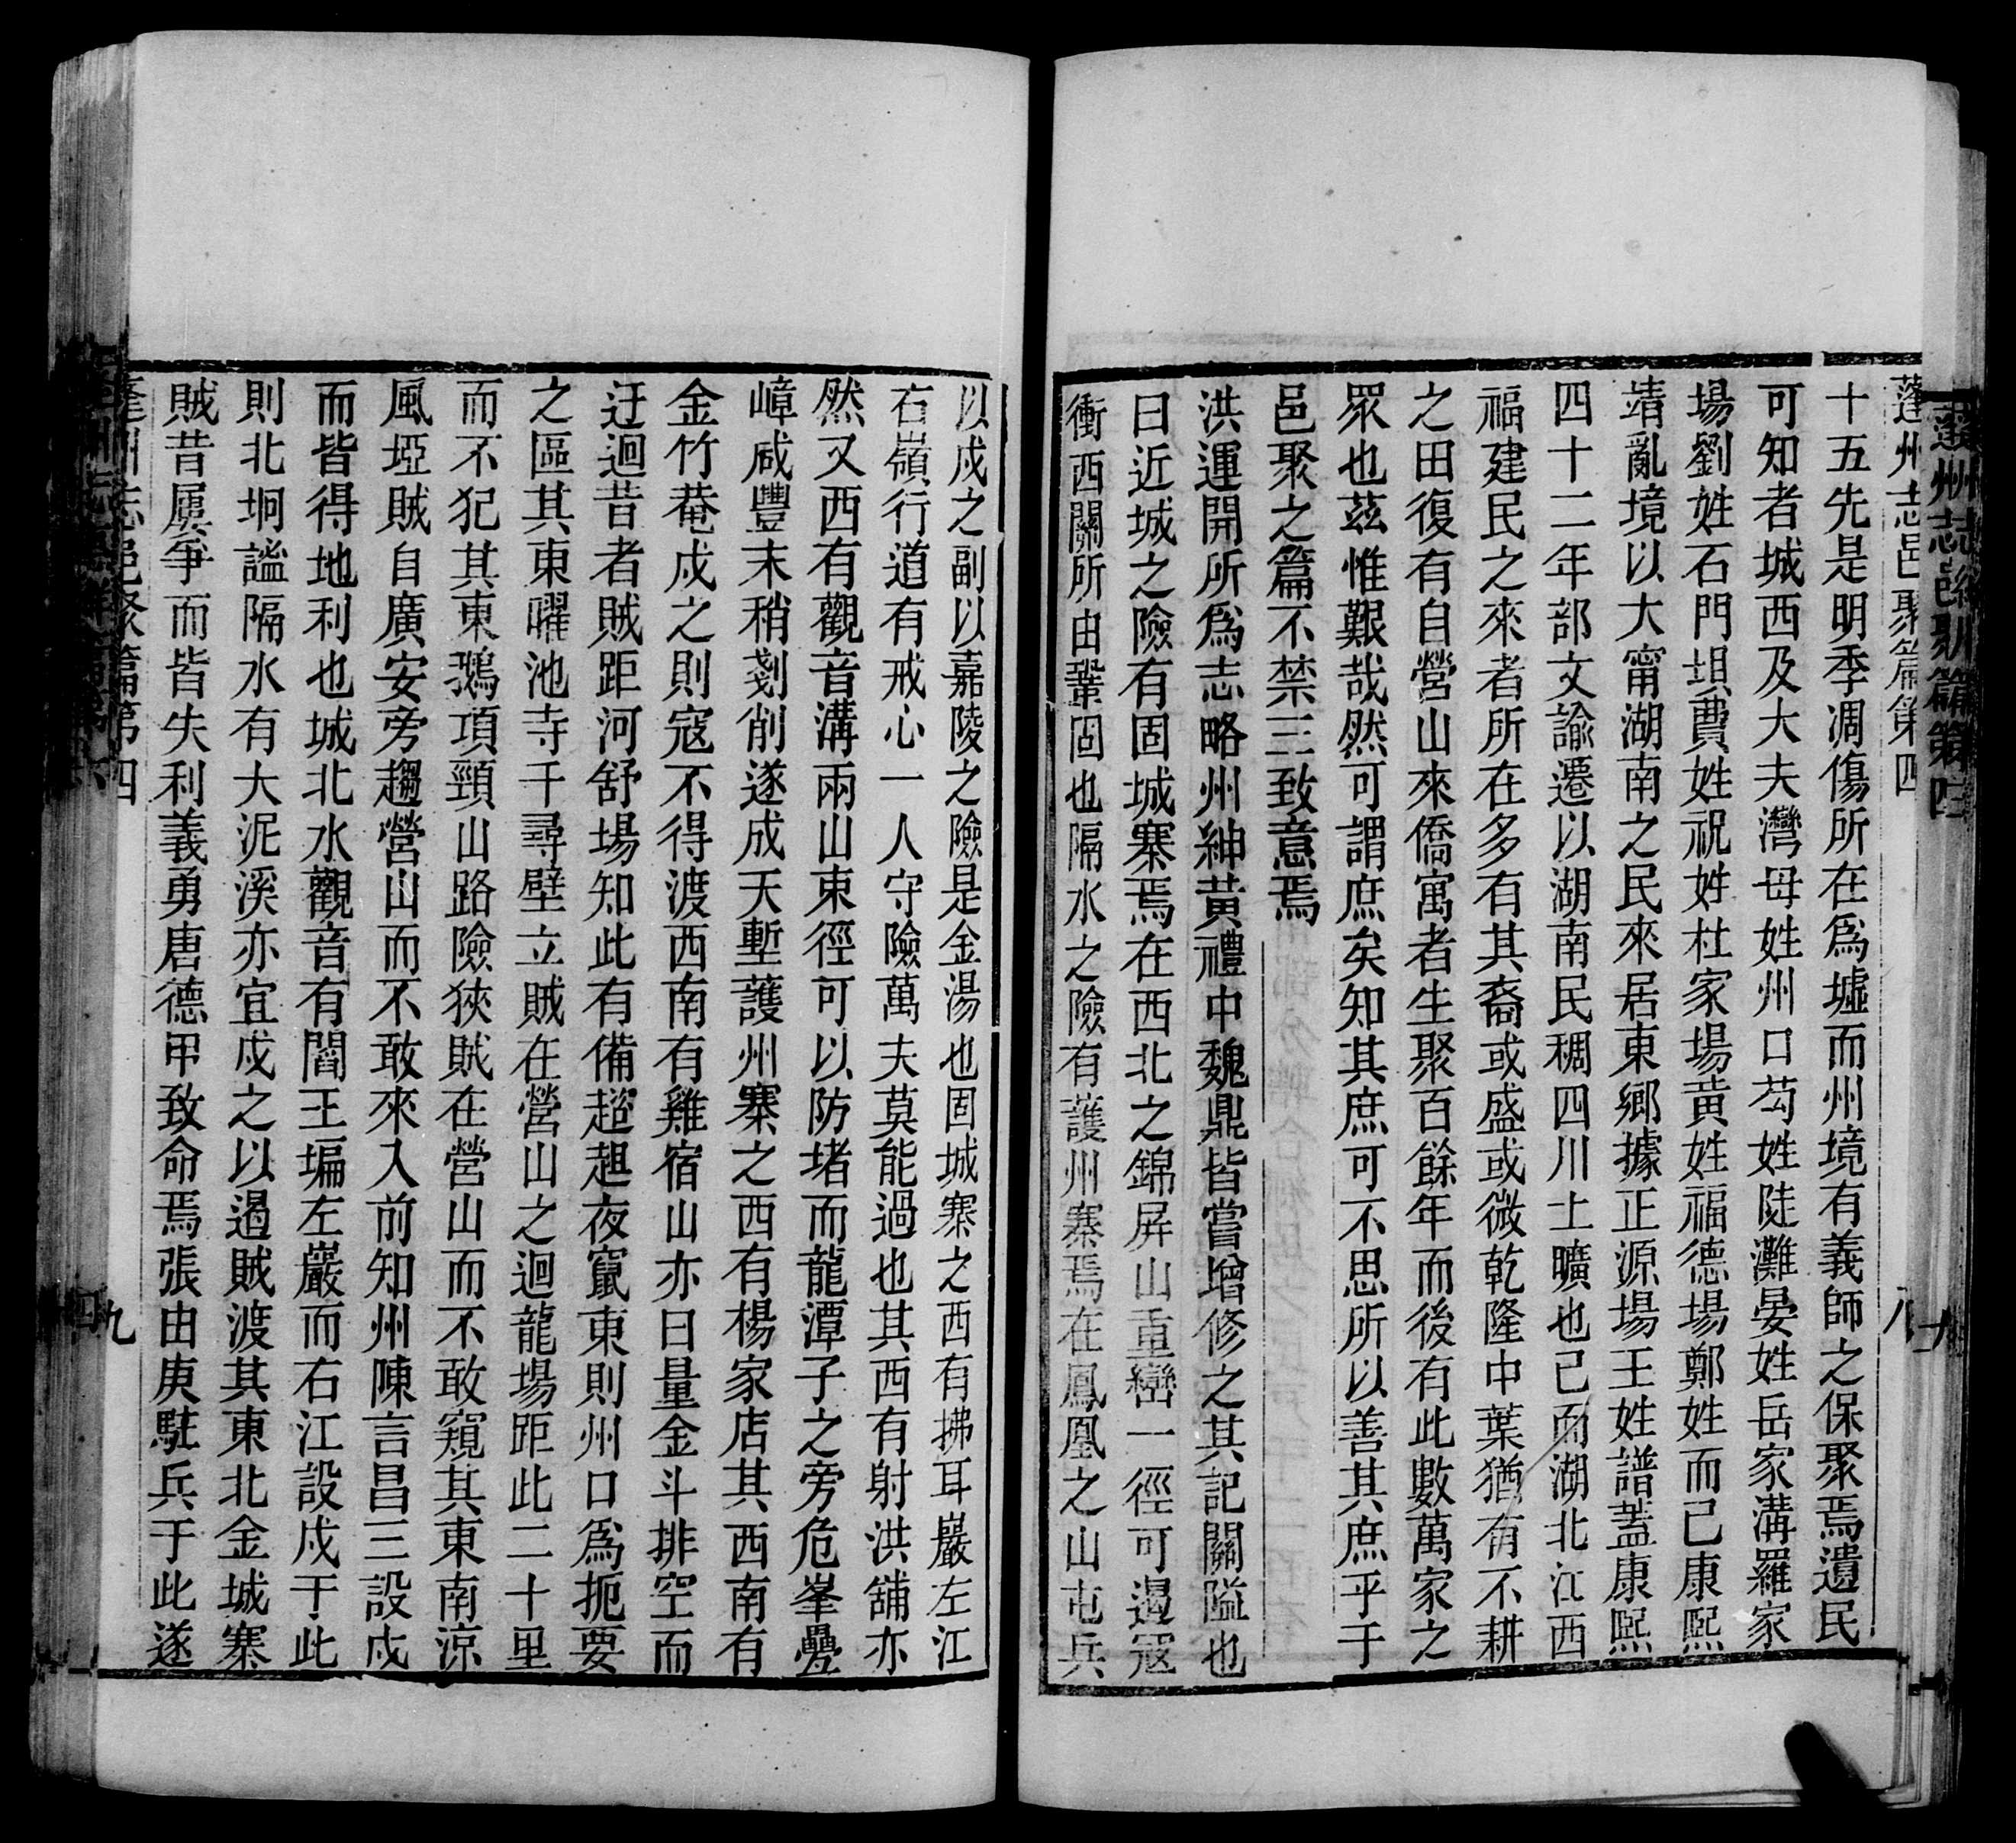 蓬州志邑聚篇第四
八
十五先是明季凋傷所在爲墟而州境有義師之保聚焉遺民
可知者城西及大夫灣母姓州口芶姓陡灘晏姓岳家溝羅家
場劉姓石門垻費姓祝姓杜家場黃姓福德場鄭姓而已康熙
靖亂境以大甯湖南之民來居東鄉據正源場王姓譜蓋康熙
四十二年部文諭遷以湖南民稠四川土曠也已而湖北江西
福建民之來者所在多有其裔或盛或微乾隆中葉猶有不耕
之田復有自營山來僑寓者生聚百餘年而後有此數萬家之
眾也茲惟艱哉然可謂庶矣知其庶可不思所以善其庶乎于
邑聚之篇不禁三致意焉
洪運開所爲志略州紳黃禮中魏鼎皆嘗增修之其記關隘也
曰近城之險有固城寨焉在西北之錦屏山重巒一徑可遏寇
衝西關所由鞏固也隔水之險有護州寨焉在鳳凰之山屯兵
以戍之副以嘉陵之險是金湯也固城寨之西有拂耳巖左江
右嶺行道有戒心一人守險萬夫莫能過也其西有射洪舖亦
然又西有觀音溝兩山束徑可以防堵而龍潭子之旁危峯疊
嶂咸豐末稍剗削遂成天塹護州寨之西有楊家店其西南有
金竹菴戍之則寇不得渡西南有雞宿山亦曰量金斗排空而
迂迴昔者賊距河舒場知此有備趑趄夜竄東則州口爲扼要
之區其東曜池寺千尋壁立賊在營山之迴龍場距此二十里
而不犯其東鵞項頸山路險狹賊在營山而不敢窺其東南涼
風埡賊自廣安旁趨營山而不敢來入前知州陳言昌三設戍
而皆得地利也城北水觀音有閻王碥左巖而右江設戍于此
則北坰謐隔水有大泥溪亦宜戍之以遏賊渡其東北金城寨
賊昔屢爭而皆失利義勇唐德甲致命焉張由庚駐兵于此遂
蓬州志邑聚篇第四
九